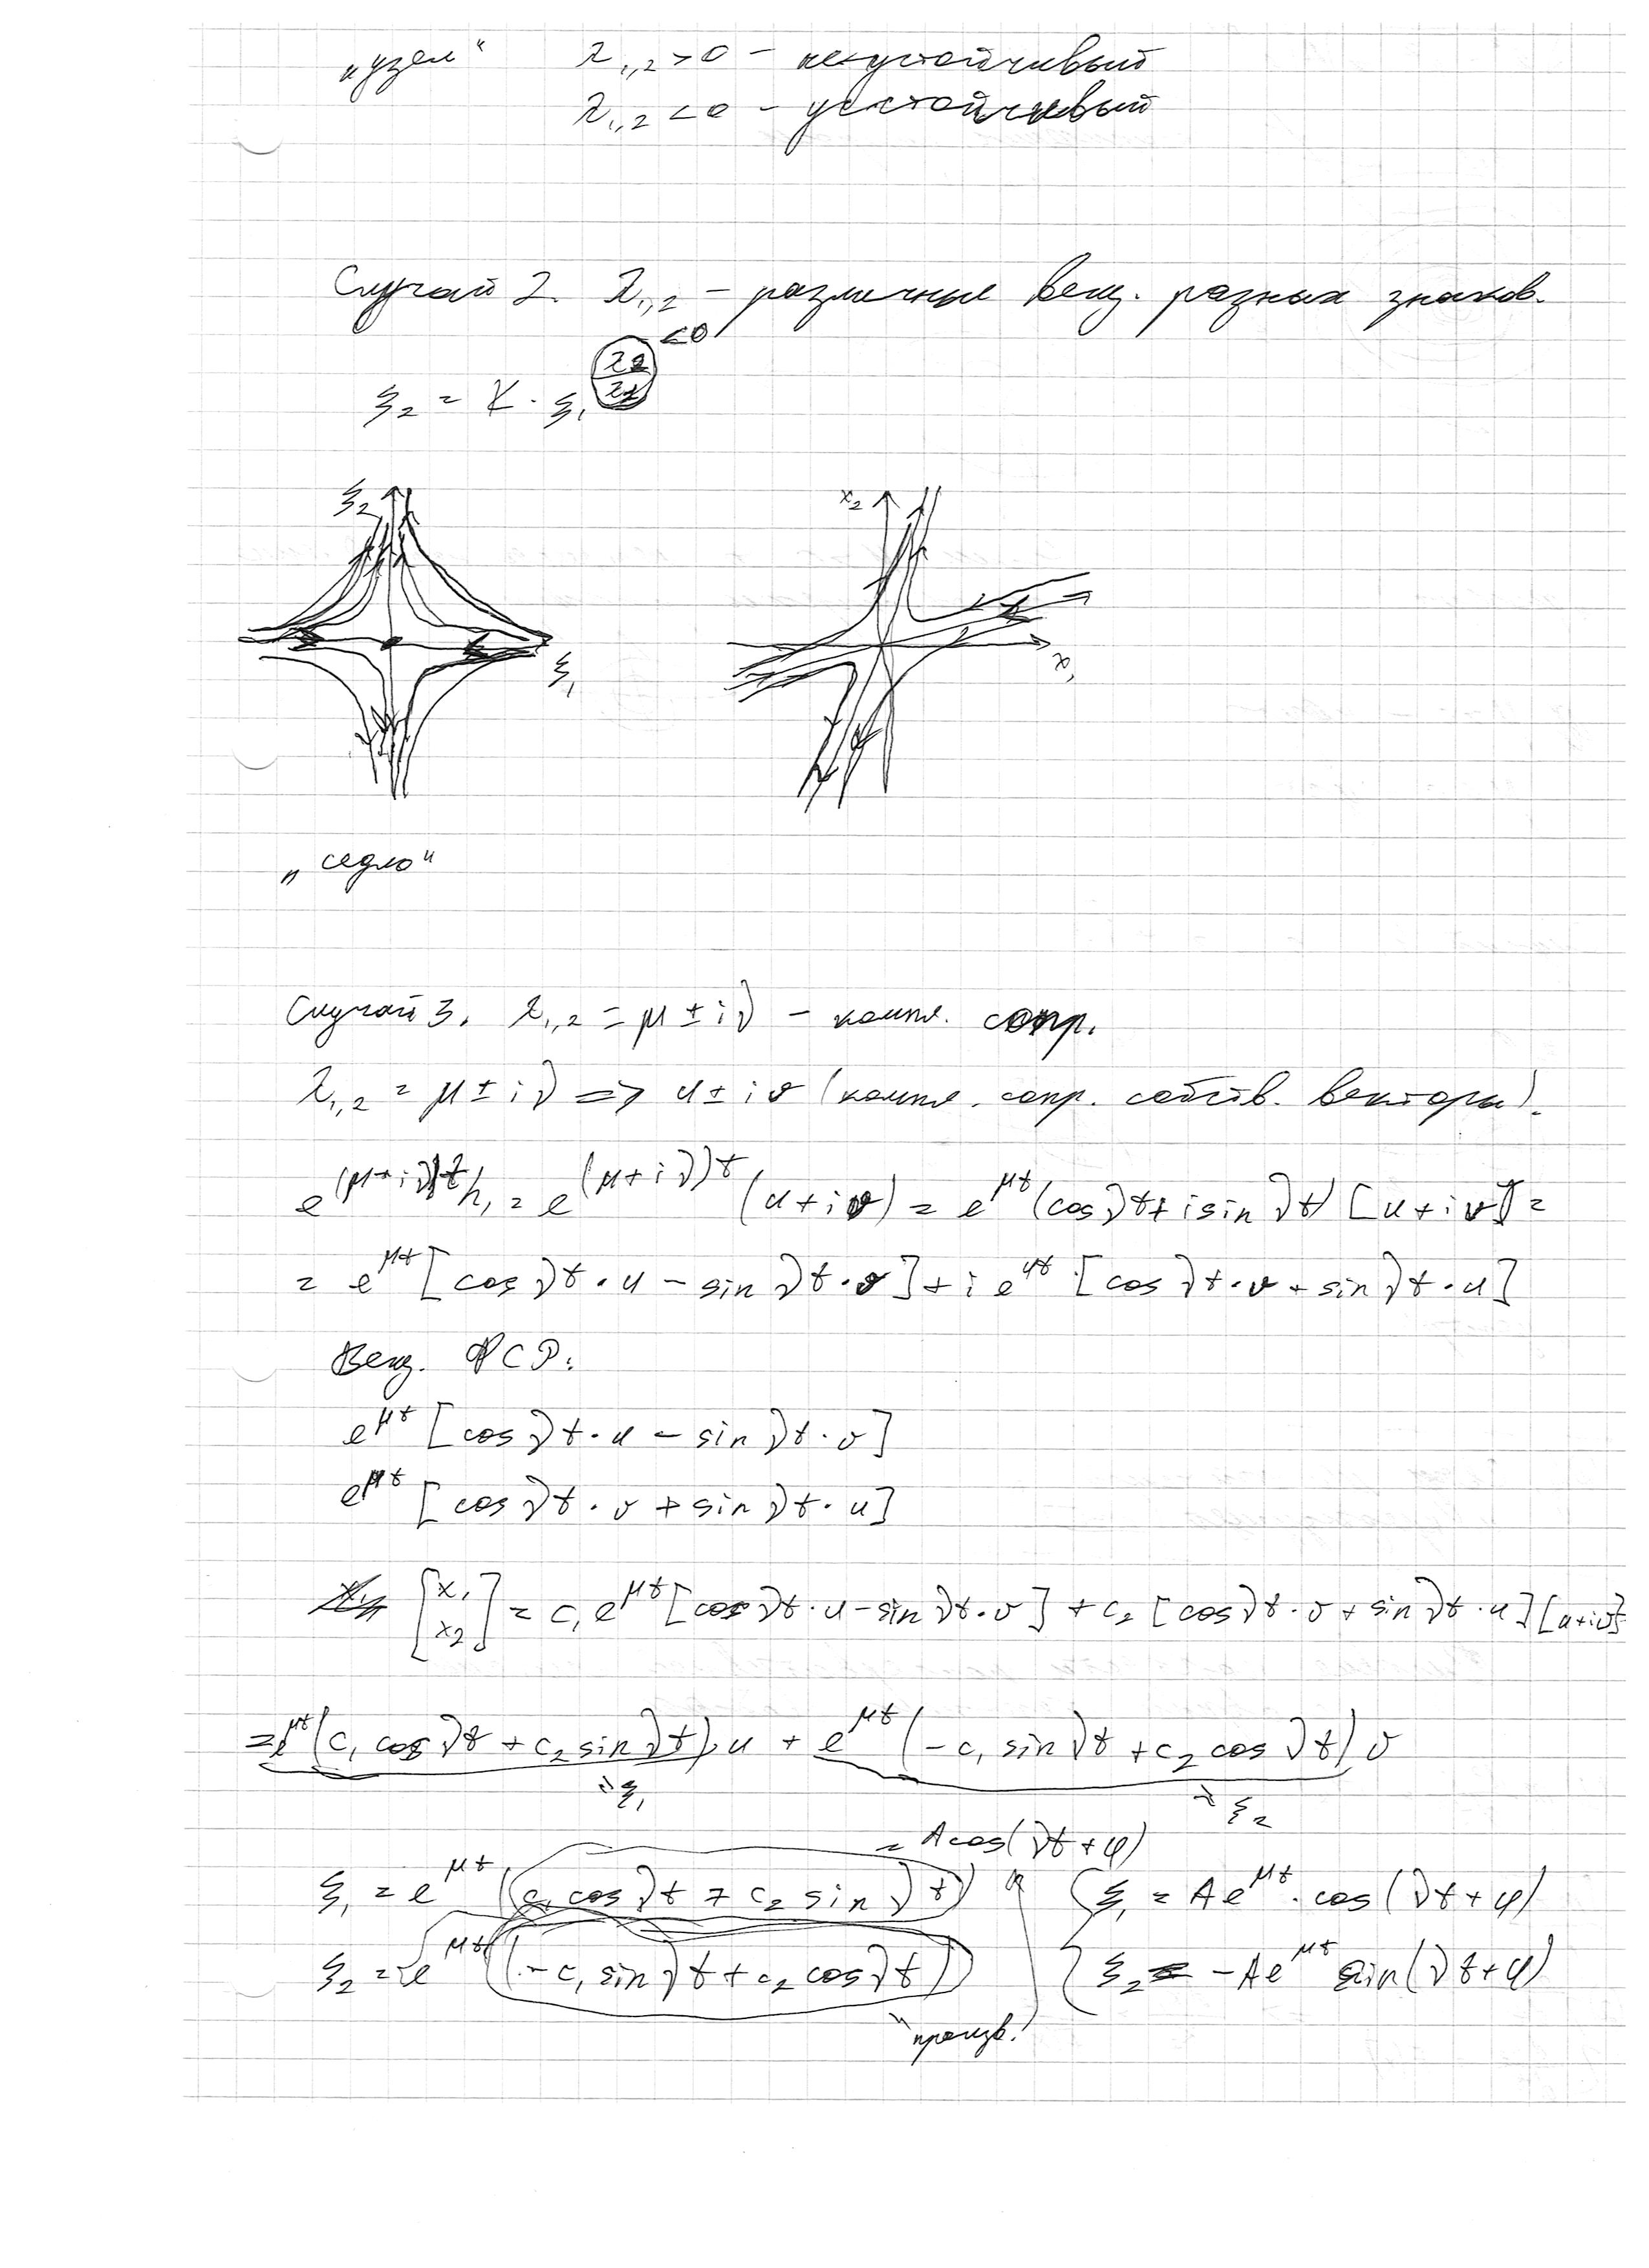 „узел“ λ₁,₂ > 0 – неустойчивый
λ₁,₂ < 0 – устойчивый
Случай 2. λ₁,₂ – различные вещ. разных знаков.
< 0
ξ₂ = K · ξ₁^(λ₂/λ₁)
ξ₂ x₂
ξ₁ x₁
„седло“
Случай 3. λ₁,₂ = μ ± iν – компл. сопр.
λ₁,₂ = μ ± iν => u ± iv (компл. сопр. собств. векторы).
e^((μ+iν)t) h₁ = e^((μ+iν)t) (u+iv) = e^(μt) (cos νt + i sin νt) [u+iv] =
= e^(μt) [cos νt · u − sin νt · v] + i e^(μt) · [cos νt · v + sin νt · u]
Вещ. ФСР:
e^(μt) [cos νt · u − sin νt · v]
e^(μt) [cos νt · v + sin νt · u]
[x₁ x₂] = c₁ e^(μt) [cos νt · u − sin νt · v] + c₂ [cos νt · v + sin νt · u] [u+iv]
= e^(μt) (c₁ cos νt + c₂ sin νt) u + e^(μt) (−c₁ sin νt + c₂ cos νt) v
ξ₁ ξ₂
= A cos(νt + φ)
ξ₁ = e^(μt) (c₁ cos νt + c₂ sin νt) { ξ₁ = A e^(μt) · cos(νt + φ)
ξ₂ = e^(μt) (−c₁ sin νt + c₂ cos νt) ξ₂ = −A e^(μt) sin(νt + φ)
произв.